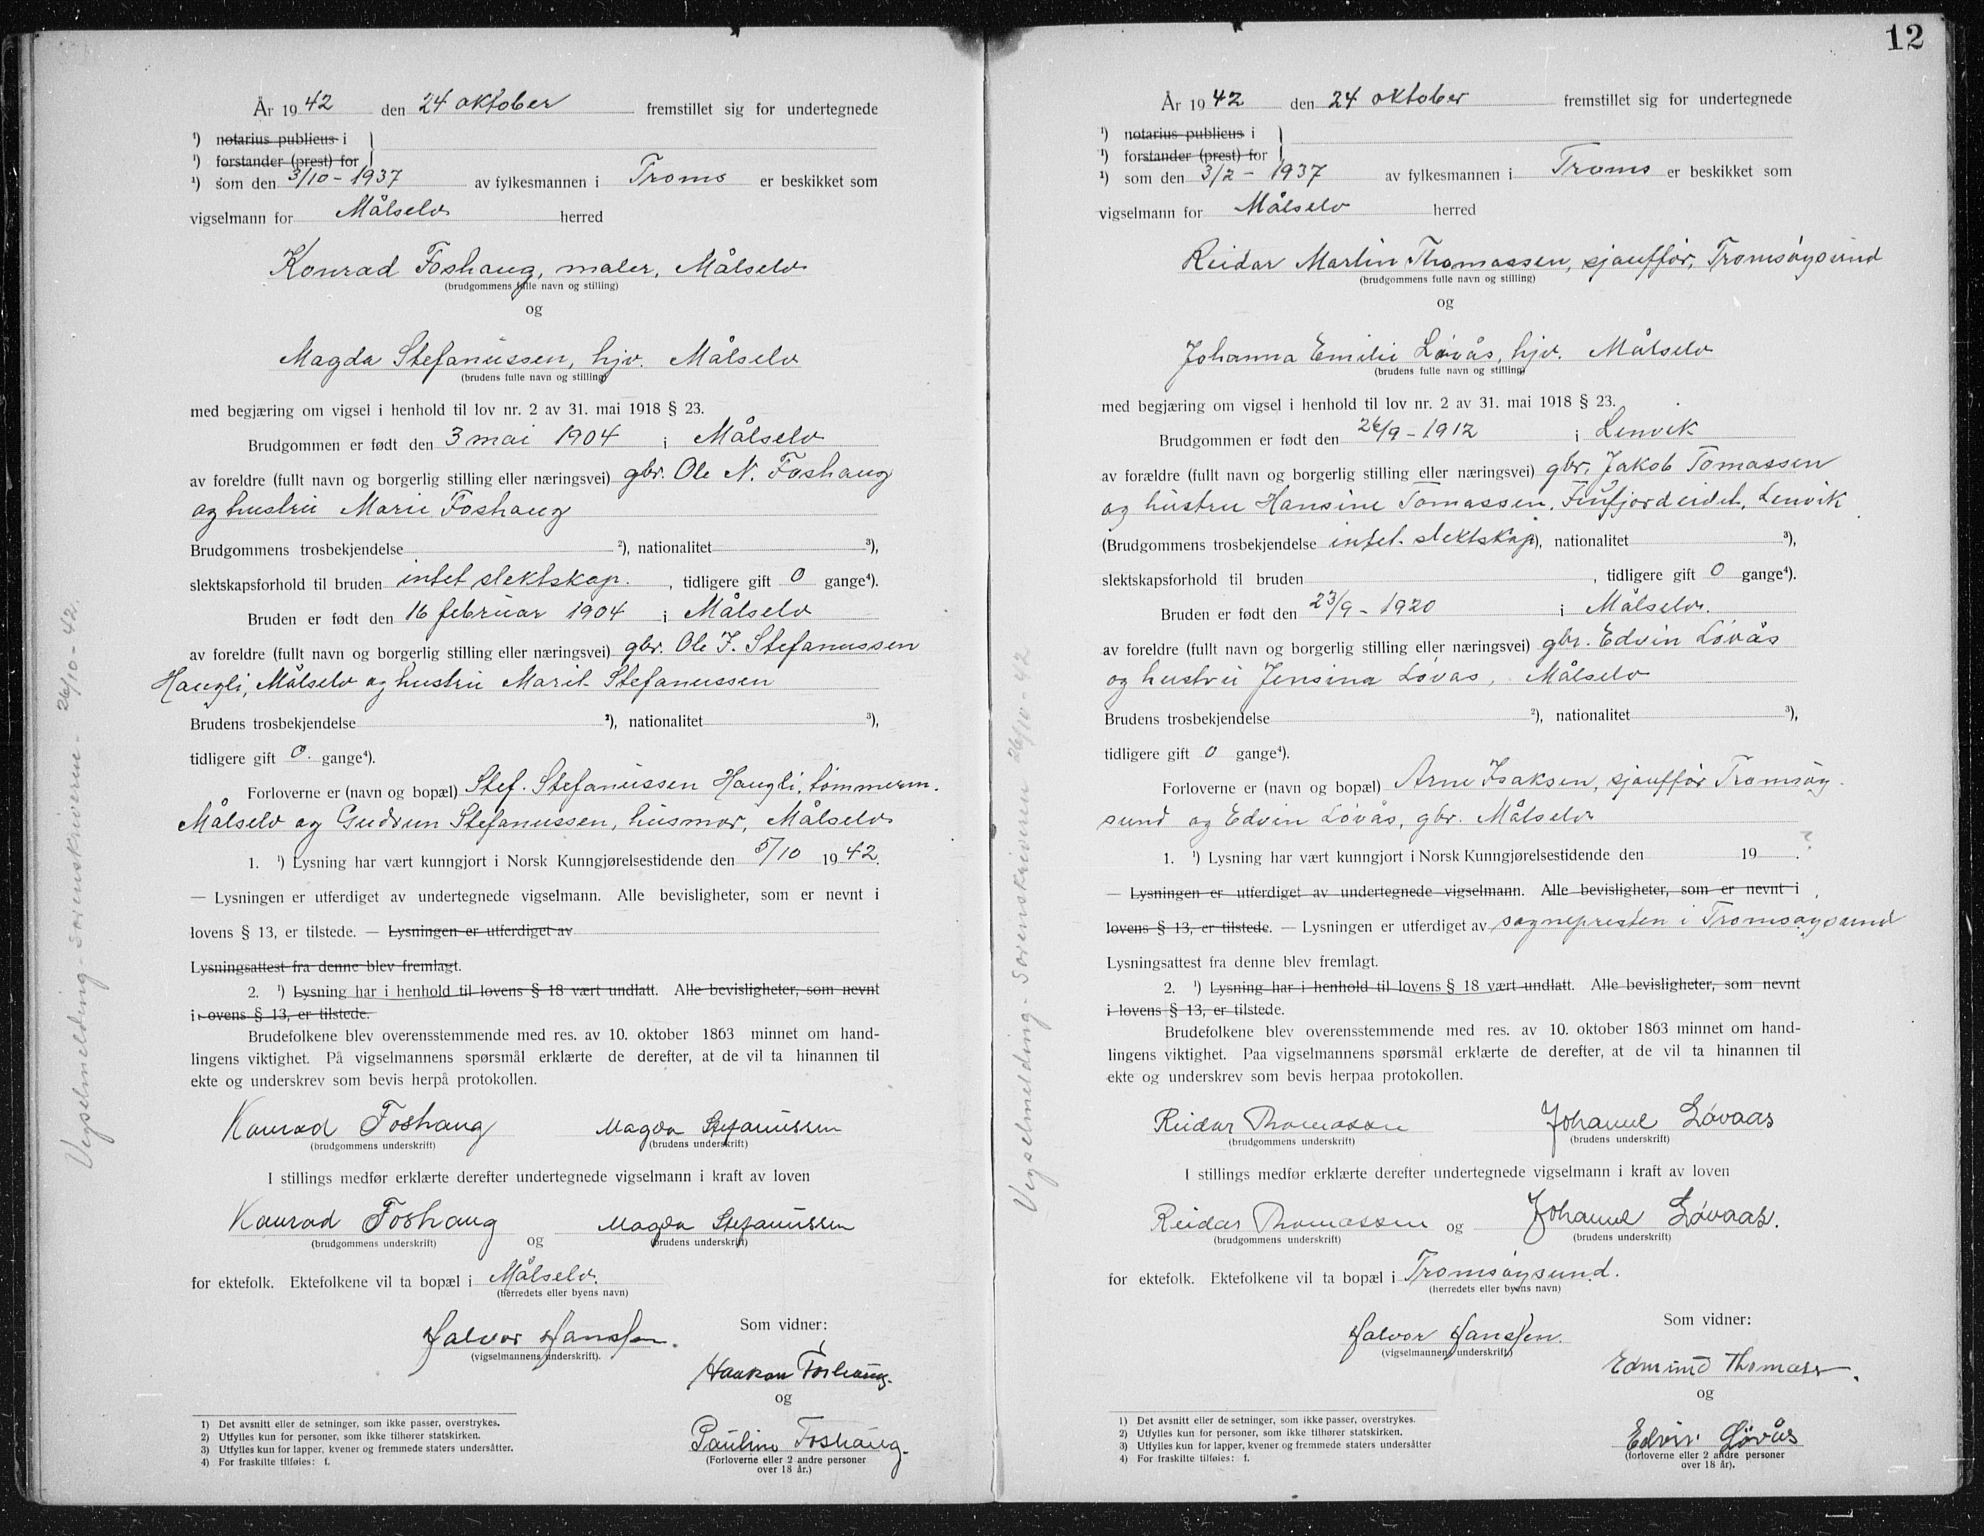 År 1942 den 24 oktober fremstillet sig for undertegnede
¹) notarius publicus i
¹) forstander (prest) for
¹) som den 3/10 - 1937 av fylkesmannen i Troms er beskikket som
vigselmann for Målselv herred
Konrad Foshaug, maler, Målselv
(brudgommens fulle navn og stilling)
og
Magda Stefanussen, hjv. Målselv
(brudens fulle navn og stilling)
med begjæring om vigsel i henhold til lov nr. 2 av 31. mai 1918 § 23.
Brudgommen er født den 3 mai 1904 i Målselv
av foreldre (fullt navn og borgerlig stilling eller næringsvei) gbr. Ole N. Foshaug
og hustru Marie Foshaug
Brudgommens trosbekjendelse ²), nationalitet ³),
slektskapsforhold til bruden intet slektskap. , tidligere gift 0 gange⁴).
Bruden er født den 16 februar 1904 i Målselv
av foreldre (fullt navn og borgerlig stilling eller næringsvei) gbr. Ole J. Stefanussen
Haugli, Målselv og hustru Marit Stefanussen
Brudens trosbekjendelse ²), nationalitet ³),
tidligere gift 0. gange⁴).
Forloverne er (navn og bopæl) Stef. Stefanussen Haugli, tømmerm.
Målselv og Gudrun Stefanussen, husmor, Målselv
1. ¹) Lysning har vært kunngjort i Norsk Kunngjørelsestidende den 5/10 1942.
— Lysningen er utferdiget av undertegnede vigselmann. Alle bevisligheter, som er nevnt i
lovens § 13, er tilstede. — Lysningen er utferdiget av
Lysningsattest fra denne blev fremlagt.
2. ¹) Lysning har i henhold til lovens § 18 vært undlatt. Alle bevisligheter, som nevnt
i lovens § 13, er tilstede.
Brudefolkene blev overensstemmende med res. av 10. oktober 1863 minnet om hand-
lingens viktighet. På vigselmannens spørsmål erklærte de derefter, at de vil ta hinannen til
ekte og underskrev som bevis herpå protokollen.
Konrad Foshaug Magda Stefanussen
(brudgommens underskrift) (brudens underskrift)
I stillings medfør erklærte derefter undertegnede vigselmann i kraft av loven
Konrad Foshaug og Magda Stefanussen
(brudgommens underskrift) (brudens underskrift)
for ektefolk. Ektefolkene vil ta bopæl i Målselv.
(herredets eller byens navn)
Som vidner:
Halvor Hanssen.
(vigselmannens underskrift).
Haakon Foshaug.
og
Pauline Foshaug.
(Forloverne eller 2 andre personer
over 18 år.)
1) Det avsnitt eller de setninger, som ikke passer, overstrykes.
2) Utfylles kun for personer, som ikke tilhører statskirken.
3) Utfylles kun for lapper, kvener og fremmede staters undersåtter.
4) For fraskilte tilføies: f.
Vigselmelding - sorenskriveren - 26/10 - 42.
12
År 1942 den 24 oktober fremstillet sig for undertegnede
¹) notarius publicus i
¹) forstander (prest) for
¹) som den 3/2 - 1937 av fylkesmannen i Troms er beskikket som
vigselmann for Målselv herred
Reidar Martin Thomassen, sjauffør, Tromsøysund
(brudgommens fulle navn og stilling)
og
Johanna Emilie Løvås, hjv. Målselv
(brudens fulle navn og stilling)
med begjæring om vigsel i henhold til lov nr. 2 av 31. mai 1918 § 23.
Brudgommen er født den 26/9 - 1912 i Lenvik
av forældre (fullt navn og borgerlig stilling eller næringsvei) gbr, Jakob Tomassen
og hustru Hansine Tomassen, Finfjordeidet, Lenvik
(Brudgommens trosbekjendelse intet slektskap), nationalitet ³),
slektskapsforhold til bruden , tidligere gift 0 gange⁴).
Bruden er født den 23/9 - 1920 i Målselv.
av foreldre (fullt navn og borgerlig stilling eller næringsvei) gbr. Edvin Løvås
og hustru Jensina Løvås, Målselv
Brudens trosbekjendelse ²), nationalitet ³),
tidligere gift 0 gange⁴).
Forloverne er (navn og bopæl) Arne Isaksen, sjauffør Tromsøy-
sund og Edvin Løvås, gbr. Målselv
1. ¹) Lysning har vært kunngjort i Norsk Kunngjørelsestidende den 19 . ?
— Lysningen er utferdiget av undertegnede vigselmann. Alle bevisligheter, som er nevnt i
lovens § 13, er tilstede. — Lysningen er utferdiget av sognepresten i Tromsøysund
Lysningsattest fra denne blev fremlagt.
2. ¹) Lysning har i henhold til lovens § 18 vært undlatt. Alle bevisligheter, som nevnt
i lovens § 13, er tilstede.
Brudefolkene blev overensstemmende med res. av 10. oktober 1863 minnet om hand-
lingens viktighet. Paa vigselmannens spørsmål erklærte de derefter, at de vil ta hinannen til
ekte og underskrev som bevis herpaa protokollen.
Reidar Thomassen Johanne Løvaas
(brudgommens underskrift) (brudens underskrift)
I stillings medfør erklærte derefter undertegnede vigselmann i kraft av loven
Reidar Thomassen og Johanne Løvaas.
(brudgommens underskrift) (brudens underskrift)
for ektefolk. Ektefolkene vil ta bopæl i Tromsøysund.
(herredets eller byens navn)
Som vidner:
Halvor Hanssen.
(vigselmannens underskrift)
Edmund Thomassen.
og
Edvin Løvås
(forloverne eller 2 andre personer
over 18 år).
1) Det avsnitt eller de setninger, som ikke passer, overstrykes.
2) Utfylles kun for personer, som ikke tilhører statskirken.
3) Utfylles kun for lapper, kvener og fremmede staters undersåtter
4) For fraskilte tilføies: f.
Vigselmelding - Sorenskriveren 26/10 - 42